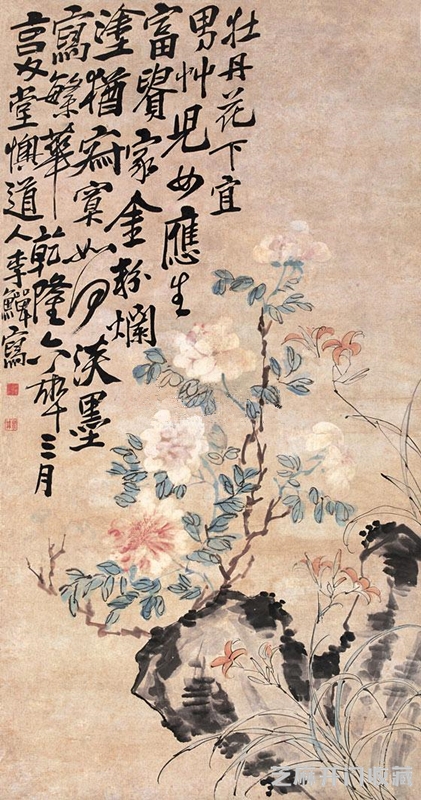 牡丹花下宜
男艸兒女應生
富貴家金粉爛
塗猶寂寞如何淡墨
寫繁華乾隆年三月
堂懊道人李鱓寫
开门收藏